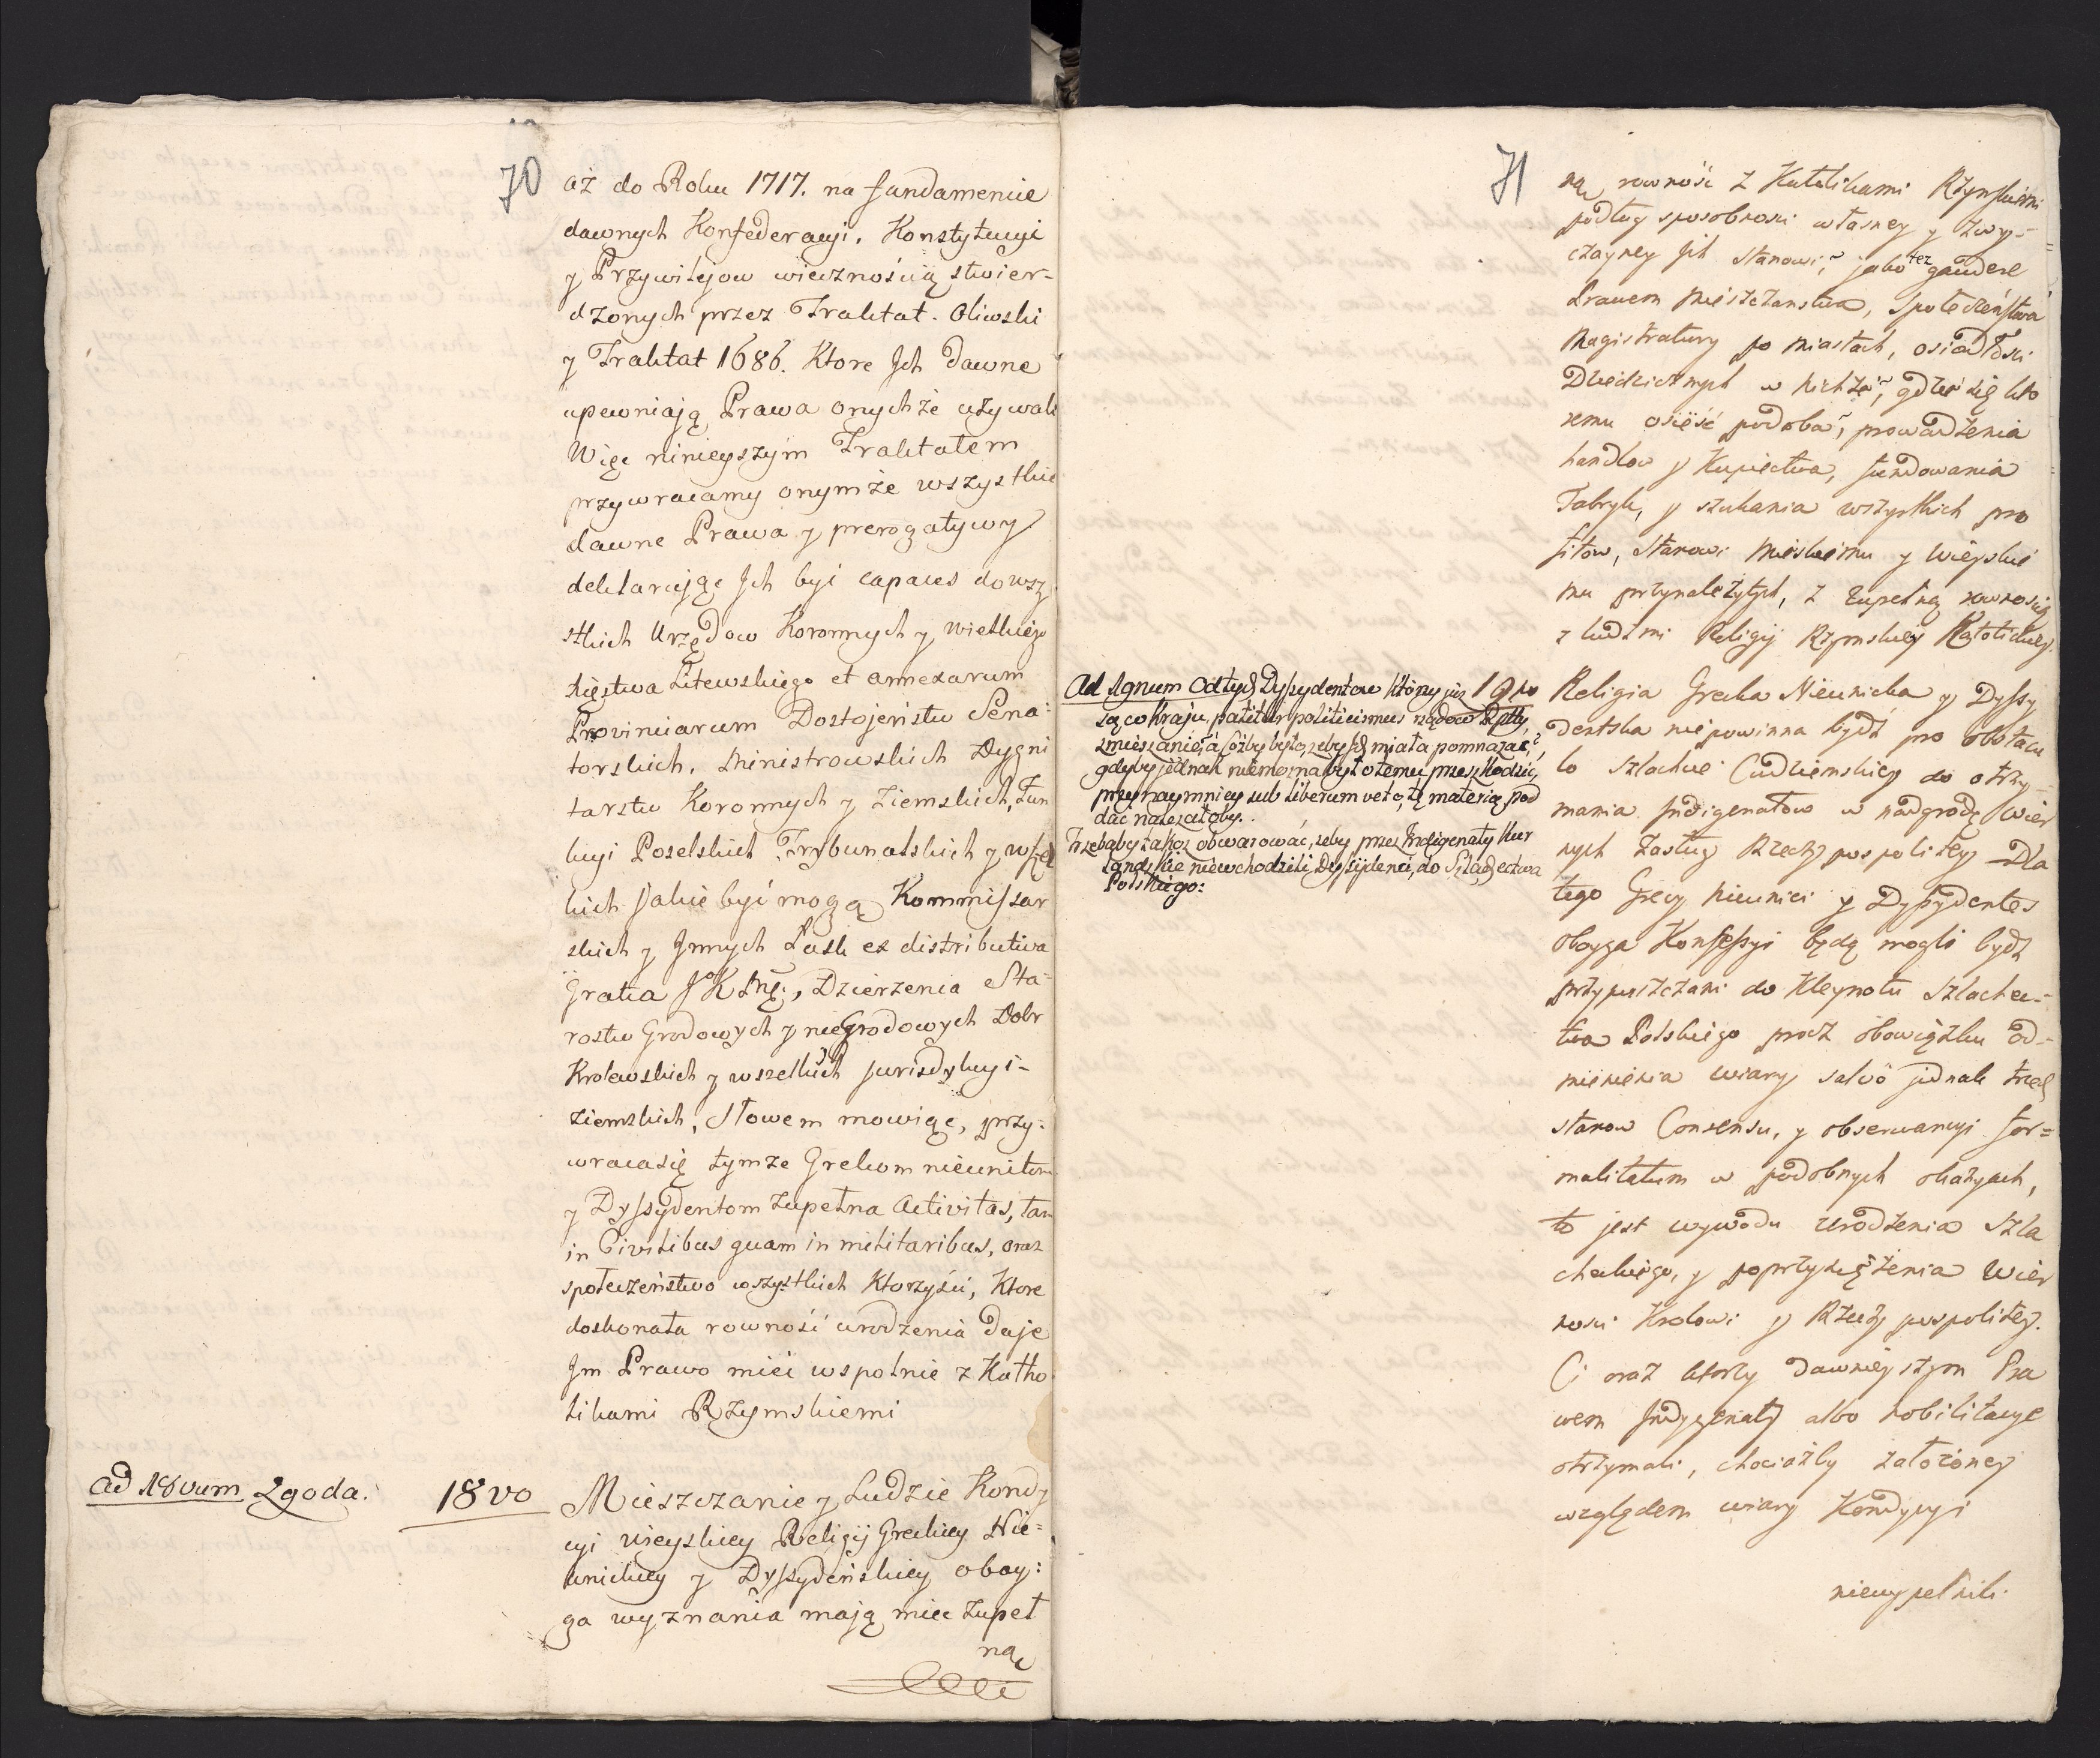 70
aż do Roku 1717. na fundamencie
dawnych Konfederacyi. Konstytucyi
y Przywilejow wiecznością stwier-
dzonych przez Traktat Oliwski
y Traktat 1686. Ktore Jch dawne
upewniają Prawa onychże używali
Więc ninieyszym Traktatem
przywracamy onymże wszystkie
dawne Prawa y prerogatywy
deklarując Jch byi capaces do wszy
stkich Urzędow Koronnych y wielkiego
Xięstwa Litewskiego et annexarum
Provinciarum Dostojeństw Sena-
torskich, Ministrowskich Dygni
tarstw Koronnych y Ziemskich, Fun
kcyi Poselskich Trybunalskich y wszel
kich Jakie byi mogą Kommissar
skich y Jnnych Łask ex distributiva
Gratia JKMę, Dzierżenia Sta-
rostw Grodowych y nieGrodowych Dobr
Krolewskich y wszelkich Jurisdykcyi-
Ziemskich, Słowem mowiąc, przy-
wraca się tymże Grekom nieunitom
y Dyssydentom zupełna Activitas, tam
in Civilibus quam in militaribus, oraz
społeczeństwo wszystkich Ktorzyści, Ktore
doskonała rowność urodzenia daje
Jm Prawo mieć wspolnie z Katho
likami Rzymskiemi
ad 18vum Zgoda.
18vo Mieszczanie y Ludzie Kondy
cyi wieyskiey Religij Greckiey Nie-
unickiey y Dyssydeńskiey oboy:
ga wyznania mają miec zupeł
ną
71
ną rowność z Katolikami Rzymskiemi
podług sposobności własney y zwy-
czayney Jch stanowi, jako też gaudere
Prawem mieszczanstwa, społeczeństwa
Magistratury po miastach, osiadłości
Dziedzicznych w nichże, gdzie się kto
remu osięść podoba, prowadzenia
handlow y Kupiectwa, fundowania
Fabryk, y szukania wszystkich pro
fitow, Stanowi mieskiemu y wieyskie
mu przynależytych, z zupełną rownością
z ludźmi Religij Rzymskiey Katolickiey.
Ad 19num Od tych Dyssydentow którzy już
są w Kraju patitur politicismus rządow Rzptty
zmieszanie, a cożby było, żeby się miała pomnażać,
gdyby jednak niemożna było temu przeszkodzić,
przynaymniey sub liberum veto, tę materią pod
dać należałoby.
Trzebaby także obwarować, żeby przez Indigenaty Kur
landzkie niewchodzili Dyssydenci, do Szlachectwa
Polskiego:
19no Religia Grecka Nieunicka y Dyssy
dentska niepowinna bydź pro obstacu
lo Szlachcie Cudziemskiey do otrzy-
mania Jndigenatow w nadgrodę wier
nych zasług Rzeczy pospolitey Dla
tego Grecy nieunici y Dyssydentes
oboyga Konfessyi będą mogli bydź
przypuszczani do Kleynotu Szlachec-
twa Polskiego procz obowiązku od-
mienienia wiary salvo jednak trzech
stanow Consensu, y obserwancyi for=
malitatum w podobnych okazyach,
to jest wywodu urodzenia Szla
checkiego, y poprzysiężenia wier
ności Krolowi y Rzeczy pospolitey.
Ci oraz ktorzy dawnieyszym Pra
wem Jndygenaty albo nobilitacye
otrzymali, chociażby założoney
względem wiary Kondycyi
niewypełnili.